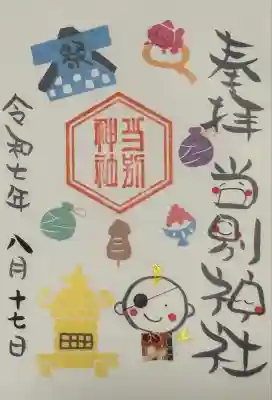 奉拝
当別神社
祭
当別
神社
令和七年 八月十七日